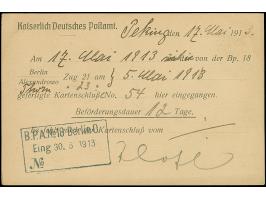 Kaiserlich Deutsches Postamt.
Peking den 17. Mai 1913.
Am 17. Mai 1913 von der Bp. 18
Berlin
Alexandrowo Zug 21 am 5. Mai 1913
Thorn " 23 "
gefertigte Kartenschluß No. 54 hier eingegangen.
Beförderungsdauer 12 Tage.
Kartenschluß vom
B.P.A. No 18 Berlin O.
Eing 30. 5 1913
No